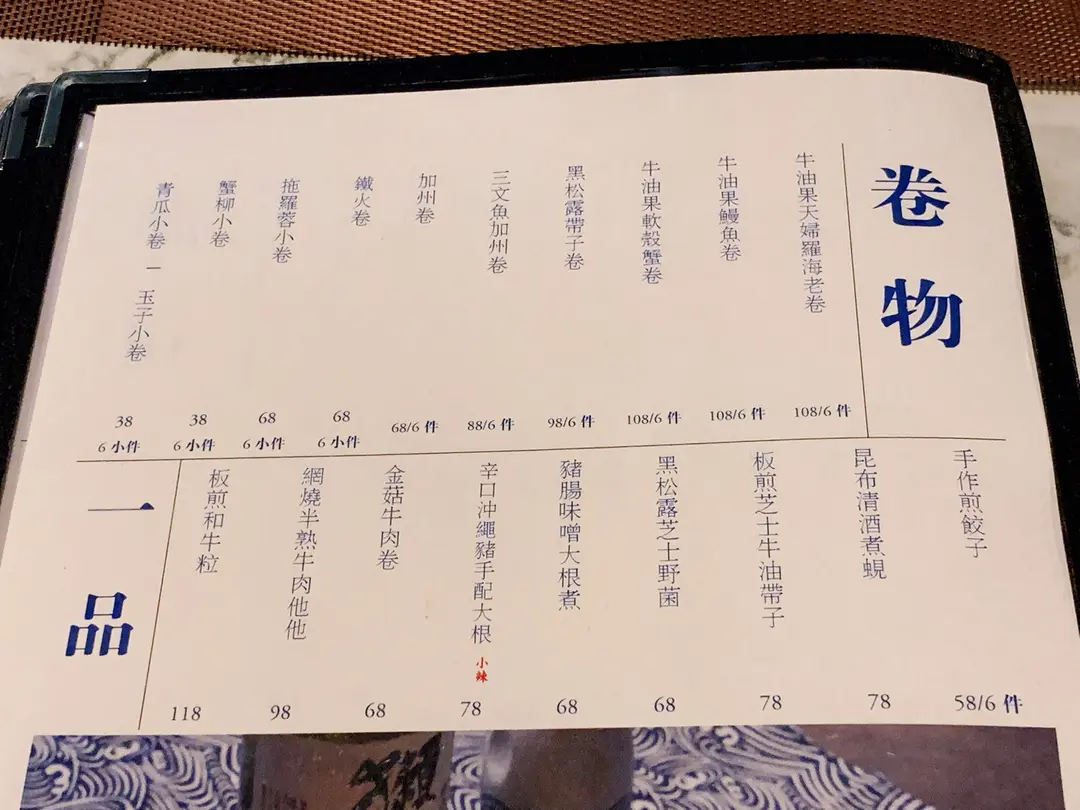 卷物
牛油果天婦羅海老卷
108/6 件
牛油果鰻魚卷
108/6 件
牛油果軟殼蟹卷
108/6 件
黑松露帶子卷
98/6 件
三文魚加州卷
88/6 件
加州卷
68/6 件
鐵火卷
68
6 小件
拖羅蓉小卷
68
6 小件
蟹柳小卷
38
6 小件
青瓜小卷 — 玉子小卷
38
6 小件
手作煎餃子
58/6 件
昆布清酒煮蜆
78
板煎芝士牛油帶子
78
黑松露芝士野菌
68
豬腸味噌大根煮
68
辛口沖繩豬手配大根
小辣
78
金菇牛肉卷
68
網燒半熟牛肉他他
98
板煎和牛粒
118
一品